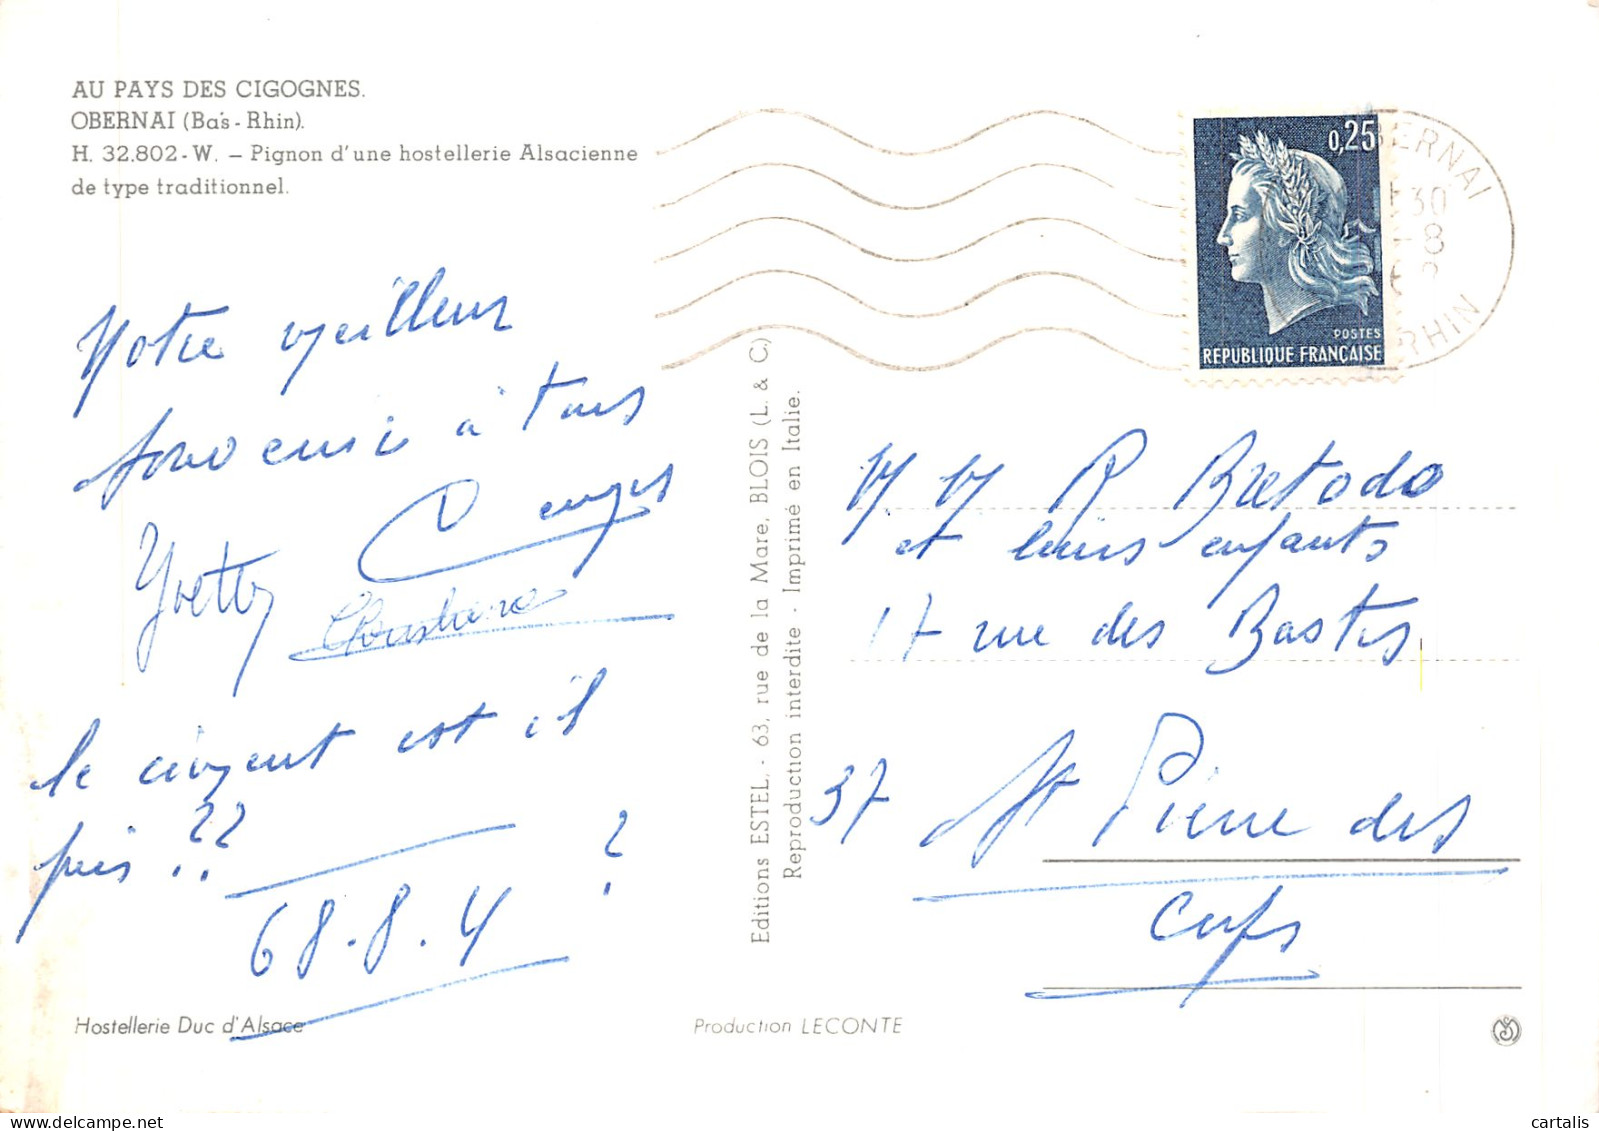 AU PAYS DES CIGOGNES.
OBERNAI (Bas-Rhin).
H. 32.802-W. – Pignon d'une hostellerie Alsacienne
de type traditionnel.
Notre meilleur
à tous
Yvette
le ciment est il
pris ??
?
68.8.4
Hostellerie Duc d'Alsace
Editions ESTEL, - 63, rue de la Mare, BLOIS (L. & C.)
Reproduction interdite - Imprimé en Italie.
Production LECONTE
0,25
POSTES
REPUBLIQUE FRANÇAISE
BERNAI
30
-8
RHIN
M M R Bretodo
et leurs enfants
17 rue des Bastes
37 St Pierre des
Corps
cartalis